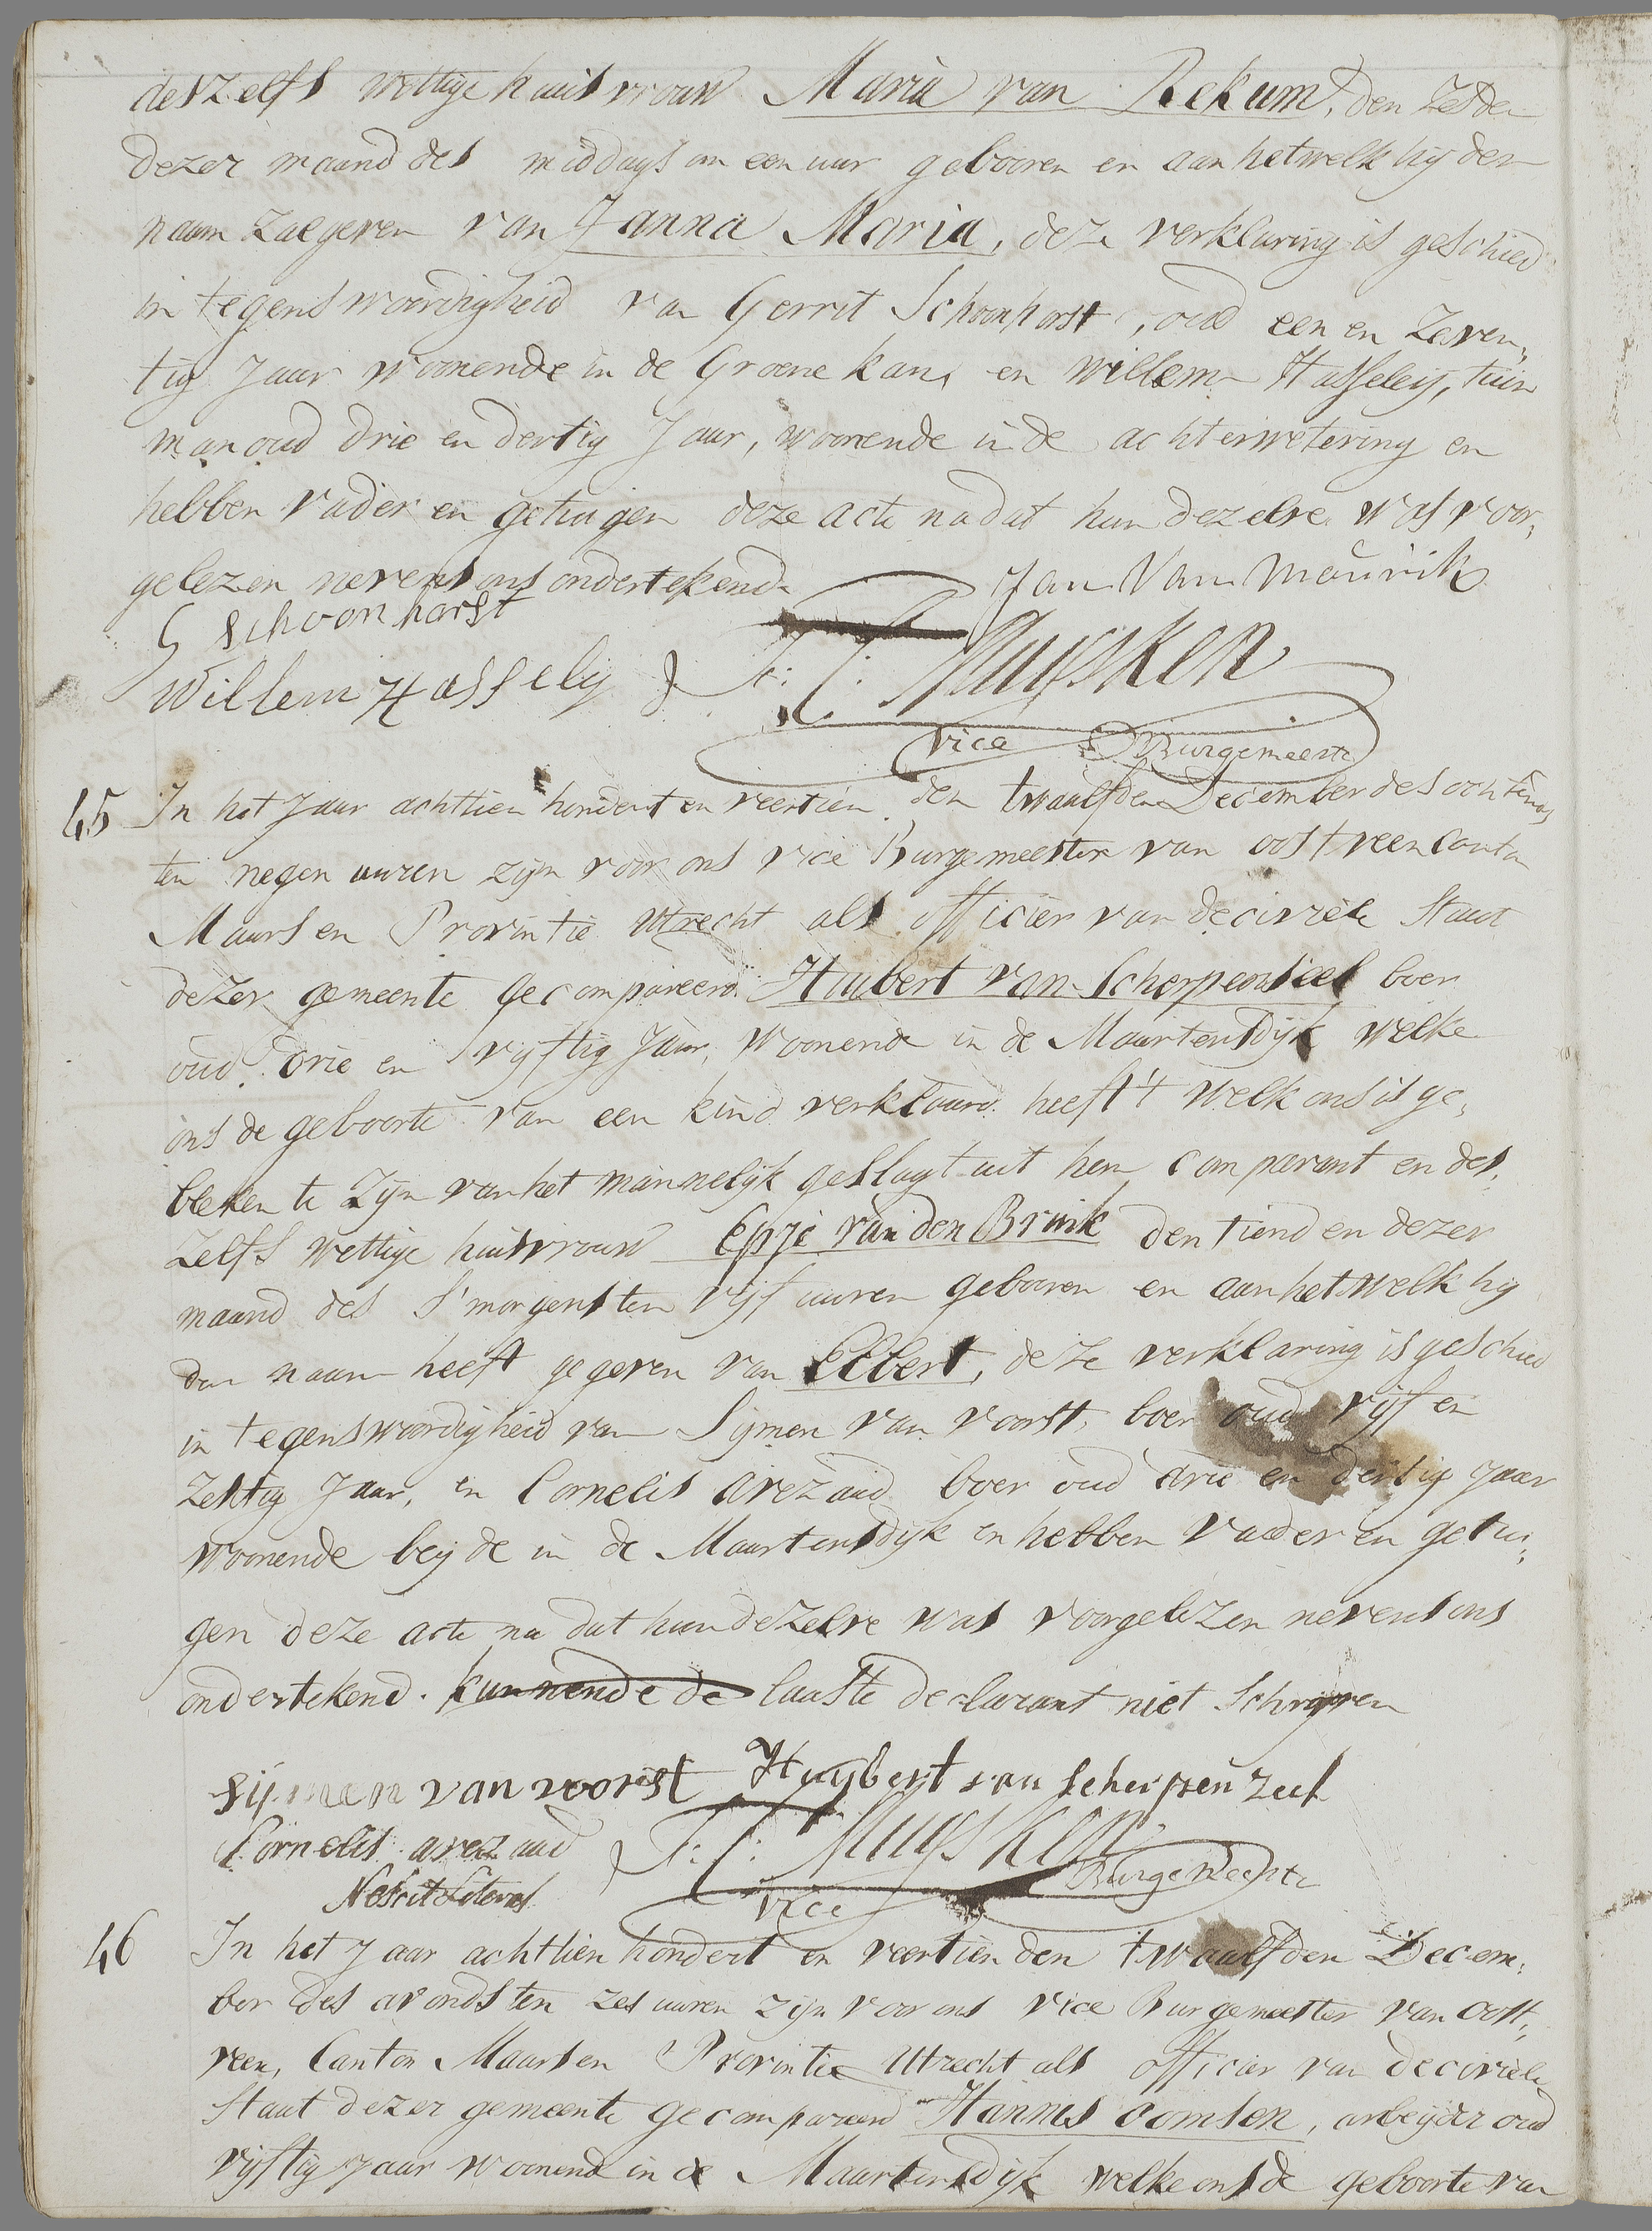 deszelfs wettige huisvrouw Maria van Rekum, den zesden
dezer maand des middags om een uur gebooren en aan hetwelk hij den
naam zal geven van Janna Maria, deze verklaring is geschied
in tegenswoordigheid van Gerrit Schoonhorst, oud een en zeven,
tig Jaar woonende in de Groenekan, en Willem Hasseleij, tuin
man oud drie en dertig Jaar, woonende in de achterwetering en
hebben vader en getuigen deze acte nadat hun dezelve was voor,
gelezen nevens ons ondertekend.
Jan Van Maurik
G Schoonhorst
Willem Hassely
F: C: Muijsken
vice Burgemeester
45 In het Jaar achttien hondert en veertien den twaalfden December des ochtends
ten negen uuren zijn voor ons vice Burgemeester van oostveen Canton
Maarsen Provintie Utrecht als officier van de civiele Staat
dezer gemeente gecompareerd Huibert van Scherpenseel boer
oud drie en vijftig Jaar, woonende in de Maartensdijk welke
ons de geboorte van een kind verklaard heeft 't welk ons is ge,
bleken te zijn van het mannelijk geslagt uit hem comparant en des,
zelfs wettige huisvrouw Epje van den Brink den tienden dezer
maand des s'morgens ten vijf uuren gebooren en aan hetwelk hij
den naam heeft gegeven van Elbert, deze verklaring is geschied
in tegenswoordigheid van Sijmen van Voorst, boer oud vijf en
zestig Jaar, en Cornelis arezaad boer oud drie en dertig Jaar
woonende beijde in de Maartensdijk en hebben vader en getui,
gen deze acte na dat hun dezelve was voorgelezen nevens ons
ondertekend. kunnende de laaste declarant niet Schrijven
Sijmen van voorst Huybert van scherpenzeel
Cornelis arezaad F: C: Muijsken
vice Burgemeester
46 In het Jaar achttien hondert en veertien den twaalfden Decem,
ber des avonds ten zes uuren zijn voor ons vice Burgemeester van oost,
veen, Canton Maarsen Provintie Utrecht als officier van de civiele
Staat dezer gemeente gecompareerd Hannes oomsen, arbeijder oud
vijftig Jaar woonend in de Maartensdijk welke ons de geboorte van